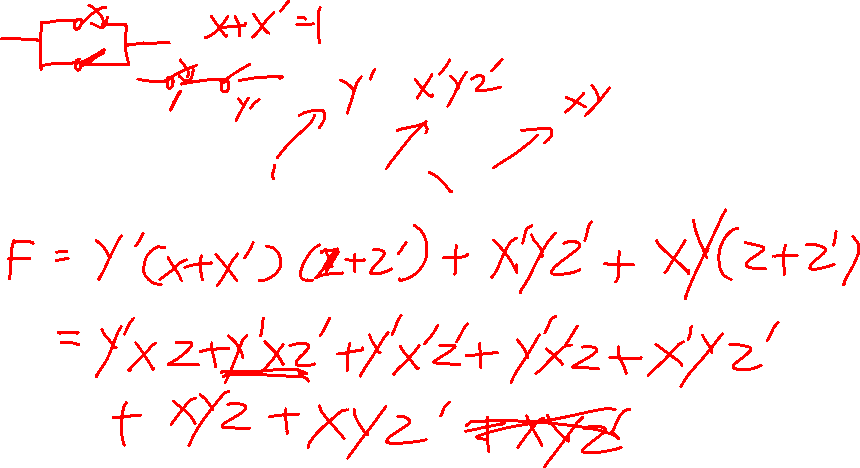 X X+X'=1
X Y'
Y' X'YZ' XY
F = Y'(X+X')(Z+Z') + X'YZ' + XY(Z+Z')
= Y'XZ+Y'XZ'+Y'X'Z'+Y'X'Z+X'YZ'
+ XYZ+XYZ' +XYZ'